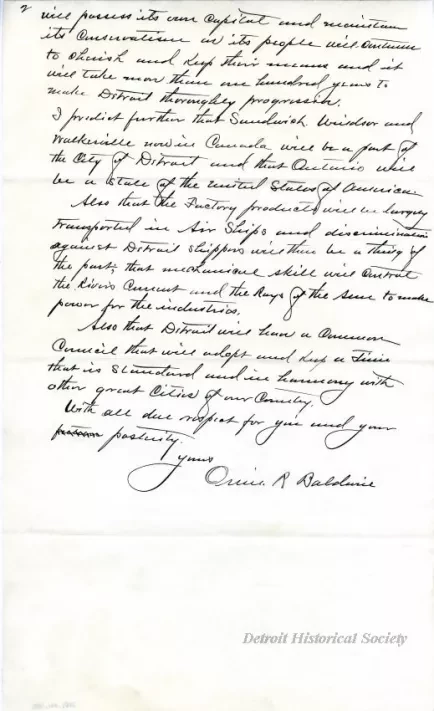 2
will possess its own Capital and maintain
its Conservatism as its people will Continue
to cherish and keep their means and it
will take more than one hundred years to
make Detroit thoroughly progressive.
I predict further that Sandwich Windsor and
Walkerville now in Canada will be a part of
the City of Detroit and that Ontario will
be a State of the United States of America.
Also that the Factory products will be largely
transported in Air Ships and discrimination
against Detroit shippers will then be a thing of
the past; that mechanical skill will Control
the Rivers Current and the Rays of the Sun to make
power for the industries.
Also that Detroit will have a Common
Council that will adopt and keep a Time
that is Standard and in harmony with
other great Cities of our Country.
With all due respect for you and your
posterity.
yours
R Baldwin
Detroit Historical Society